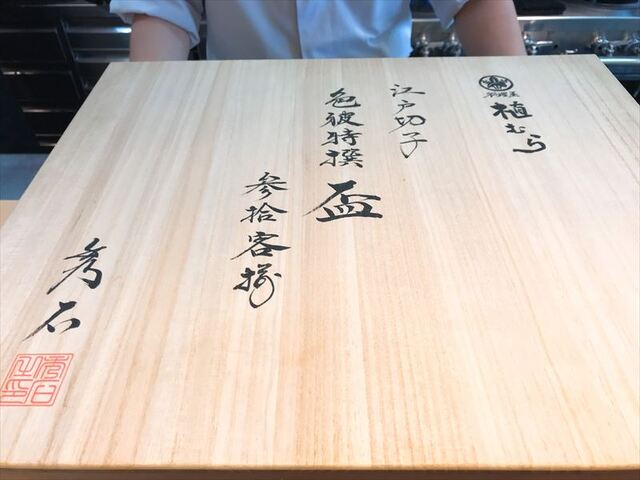 植むら
江戸切子
色被特撰
盃
参拾客揃
秀石